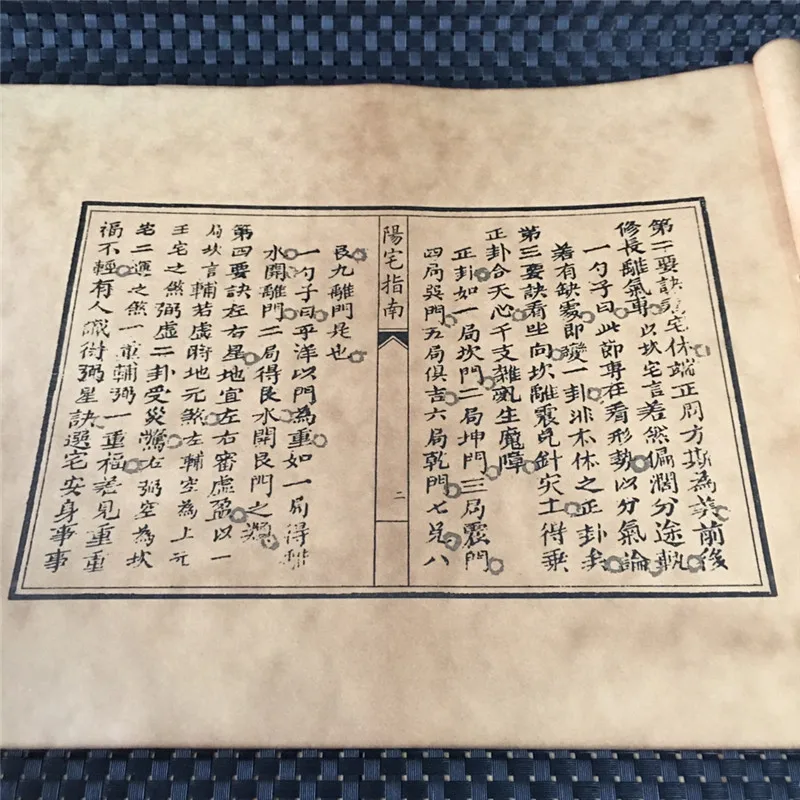 第二要訣宅休端正周方斯為美前後
修長離氣專以坎宅言若然偏濶分途執
一勺子曰此節專在看形勢以分氣論
若有缺處即變一卦非本体之正卦卦
第三要訣看坐向坎離震兌針灾士得乘
正卦合天心干支雜亂生魔障
正卦如一局坎門二局坤門三局震門
四局巽門五局俱吉六局乾門七兑八
陽宅指南
二
艮九離門是也
一勺子曰平洋以門為重如一局得離
水開離門二局得艮水開艮門之類
第四要訣左右星地宜左右審虛盈以一
局坎言輔若虛時地元煞左輔空為上元
王宅之煞弼虛二卦受災驚右弼空為坎
宅二運之煞一重輔弼一重福若見重重
福不輕有人識得弼星訣選宅安身事事